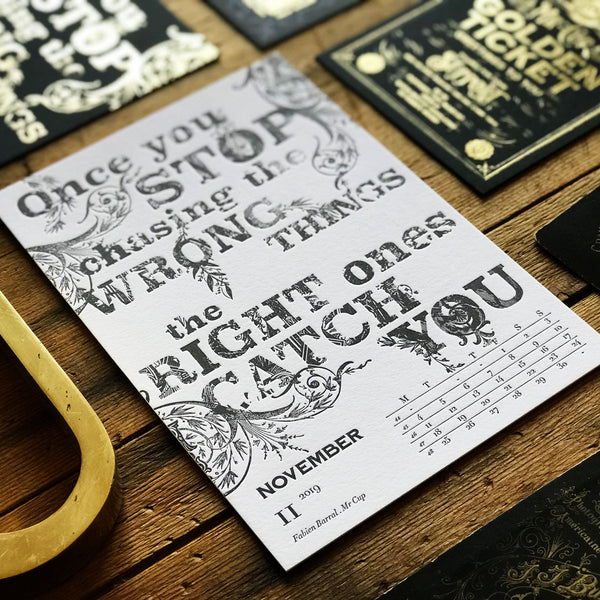 Once you
STOP
chasing the
WRONG
THINGS
the
RIGHT ones
CATCH
YOU
M T T S S
44 - - - - 1 2 3
45 4 5 6 7 8 9 10
46 11 12 13 14 15 16 17
47 18 19 20 21 22 23 24
48 25 26 27 28 29 30 -
NOVEMBER
11 2019
Fabien Barral . Mr Cup
STOP
THINGS
Mr Cup
GOLDEN
TICKET